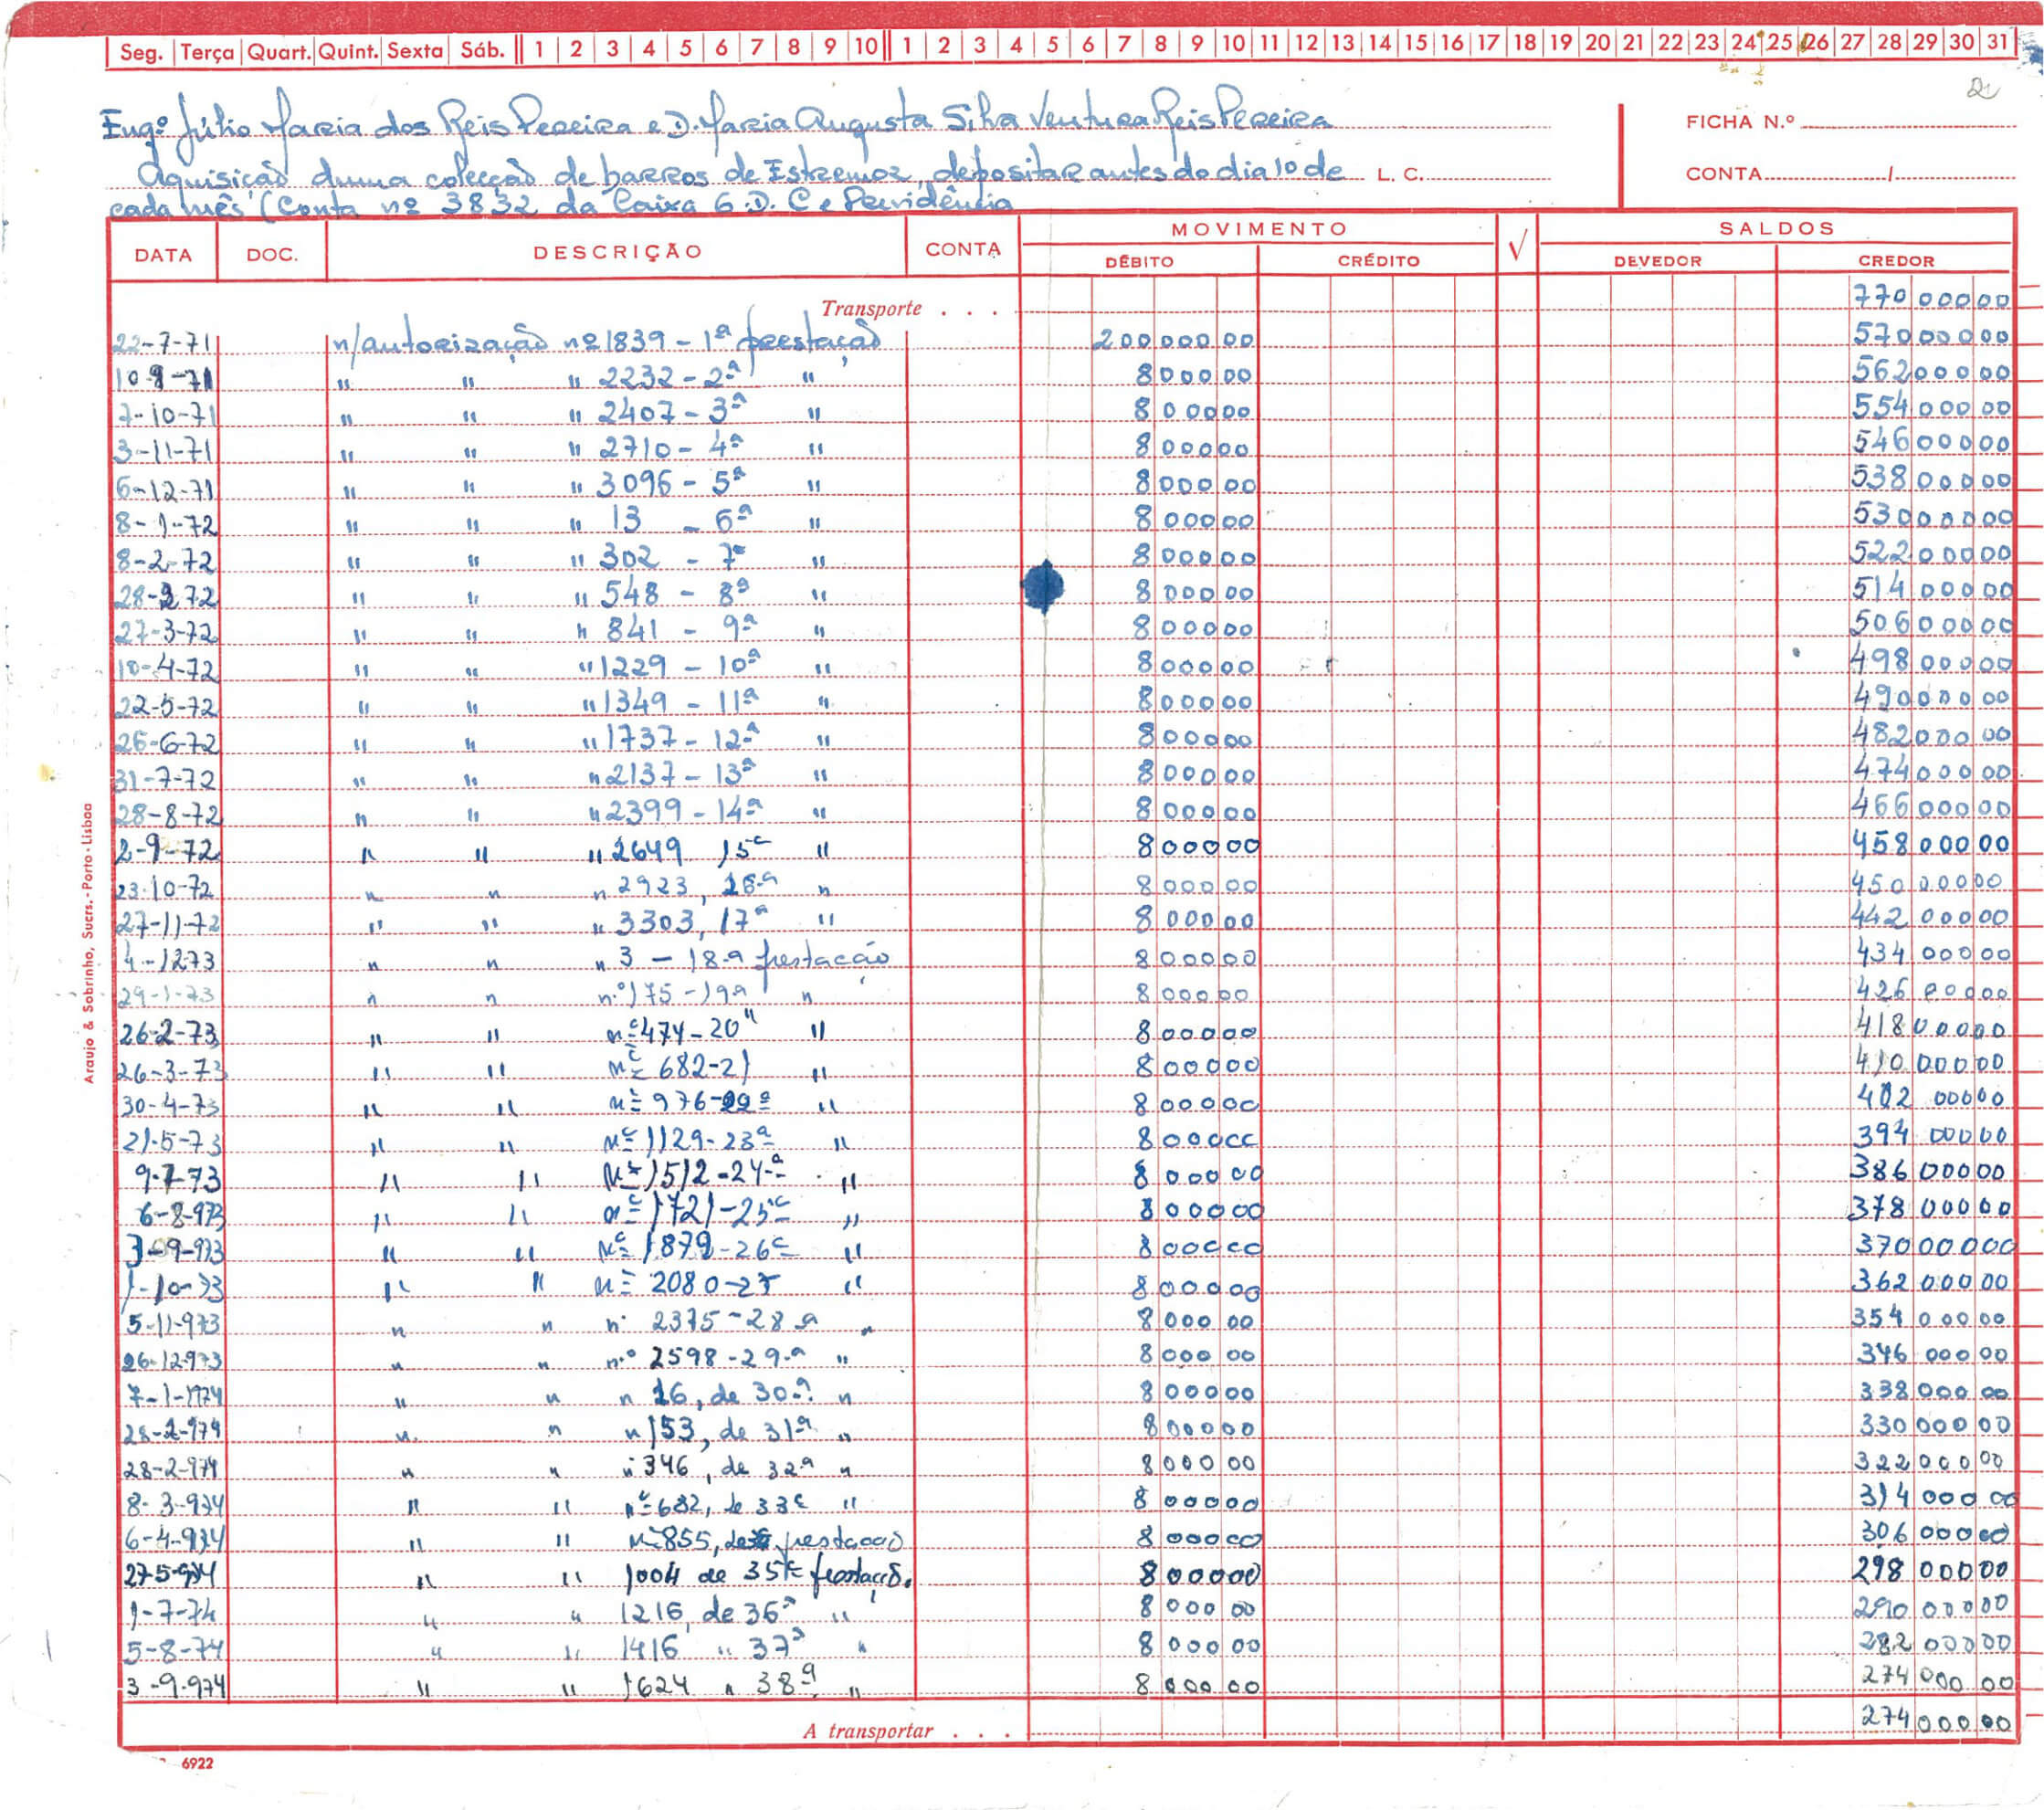 Seg. Terça Quart. Quint. Sexta Sáb. 1 2 3 4 5 6 7 8 9 10 1 2 3 4 5 6 7 8 9 10 11 12 13 14 15 16 17 18 19 20 21 22 23 24 25 26 27 28 29 30 31
Engº Júlio Maria dos Reis Pereira e D. Maria Augusta Silva Ventura Reis Pereira
FICHA N.º
Aquisição duma colecção de barros de Estremoz, depositar antes do dia 10 de L. C.
CONTA /
cada mês (Conta nº 3832 da Caixa G. D. C e Previdência
DATA DOC. DESCRIÇÃO CONTA MOVIMENTO √ SALDOS
DÉBITO CRÉDITO DEVEDOR CREDOR
Transporte . . . 770 000 00
22-7-71 n/autorização nº 1839 - 1ª prestação 200 000 00 570 000 00
10-9-71 " " " 2232 - 2ª " 8 000 00 562 000 00
7-10-71 " " " 2407 - 3ª " 8 000 00 554 000 00
3-11-71 " " " 2710 - 4ª " 8 000 00 546 000 00
6-12-71 " " " 3096 - 5ª " 8 000 00 538 000 00
8-1-72 " " " 13 - 6ª " 8 000 00 530 000 00
8-2-72 " " " 302 - 7ª " 8 000 00 522 000 00
28-2-72 " " " 548 - 8ª " 8 000 00 514 000 00
27-3-72 " " " 841 - 9ª " 8 000 00 506 000 00
10-4-72 " " " 1229 - 10ª " 8 000 00 498 000 00
22-5-72 " " " 1349 - 11ª " 8 000 00 490 000 00
26-6-72 " " " 1737 - 12ª " 8 000 00 482 000 00
31-7-72 " " " 2137 - 13ª " 8 000 00 474 000 00
28-8-72 " " " 2399 - 14ª " 8 000 00 466 000 00
2-9-72 " " " 2649 15ª " 8 000 00 458 000 00
23-10-72 " " " 2923, 16ª " 8 000 00 450 000 00
27-11-72 " " " 3303, 17ª " 8 000 00 442 000 00
4-1-273 " " " 3 - 18ª prestação 8 000 00 434 000 00
29-1-73 " " n.º 175 - 19ª " 8 000 00 426 000 00
26-2-73 " " nº 474 - 20ª " 8 000 00 418 000 00
26-3-73 " " nº 682 - 21 " 8 000 00 410 000 00
30-4-73 " " nº 976 - 22ª " 8 000 00 402 000 00
21-5-73 " " nº 1129 - 23ª " 8 000 00 394 000 00
9-7-73 " " nº 1512 - 24ª " 8 000 00 386 000 00
6-8-973 " " nº 1721 - 25ª " 8 000 00 378 000 00
3-9-973 " " nº 1879 - 26ª " 8 000 00 370 000 00
1-10-73 " " nº 2080 - 27 " 8 000 00 362 000 00
5-11-973 " " n.º 2375 - 28ª " 8 000 00 354 000 00
26-12-973 " " n.º 2598 - 29.ª " 8 000 00 346 000 00
7-1-1974 " " n 16, de 30ª " 8 000 00 338 000 00
28-2-974 " " " 153, de 31ª " 8 000 00 330 000 00
28-2-974 " " " 346, de 32ª " 8 000 00 322 000 00
8-3-974 " " nº 682, de 33ª " 8 000 00 314 000 00
6-4-974 " " nº 855, de prestação 8 000 00 306 000 00
27-5-974 " " 1004 de 35ª prestação. 8 000 00 298 000 00
1-7-74 " " 1216, de 36ª " 8 000 00 290 000 00
5-8-74 " " 1416 " 37ª " 8 000 00 282 000 00
3-9-974 " " 1624 " 38ª " 8 000 00 274 000 00
A transportar . . . 274 000 00
6922
Araujo & Sobrinho, Sucrs. - Porto - Lisboa